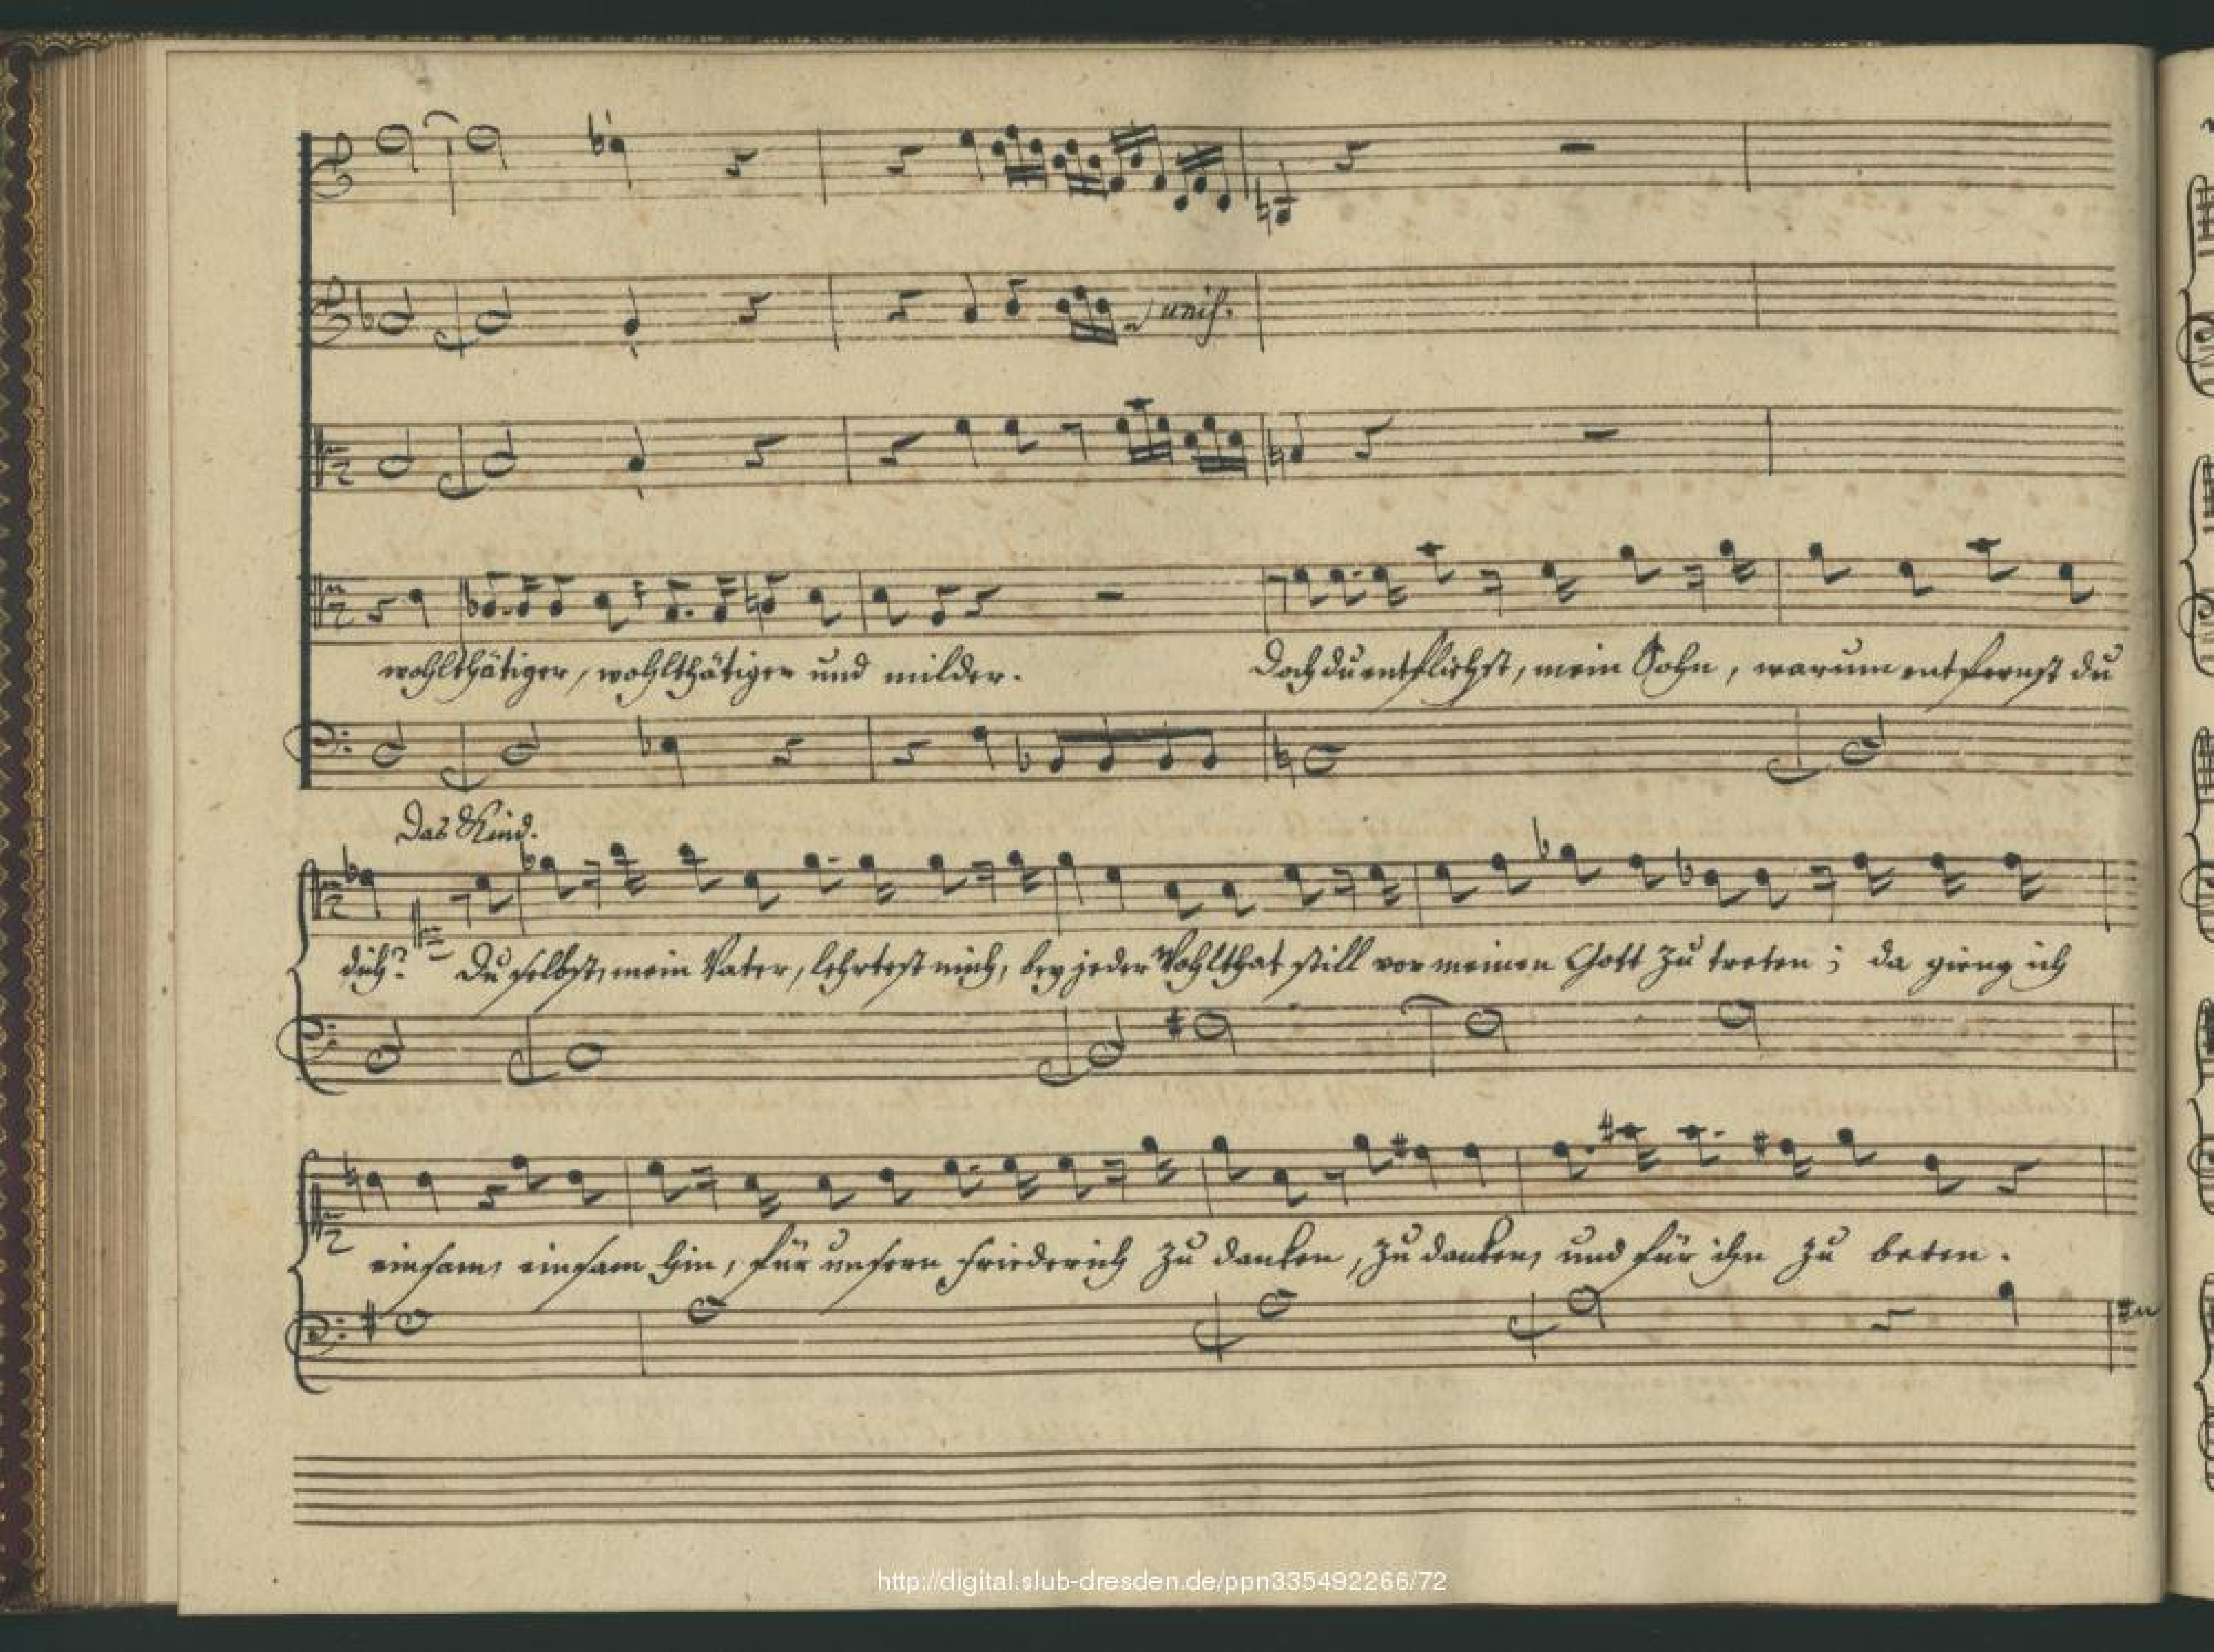 unis.
wohlthätiger, wohlthätiger und milder. Doch du entfliehst, mein Sohn, warum entfernst du
Das Kind.
dich? Du selbst, mein Vater, lehrtest mich, bey jeder Wohlthat still vor meinen Gott zu treten; da gieng ich
einsam, einsam hin, für unsern Friederich zu danken, zu danken, und für ihn zu beten.
http://digital.slub-dresden.de/ppn335492266/72